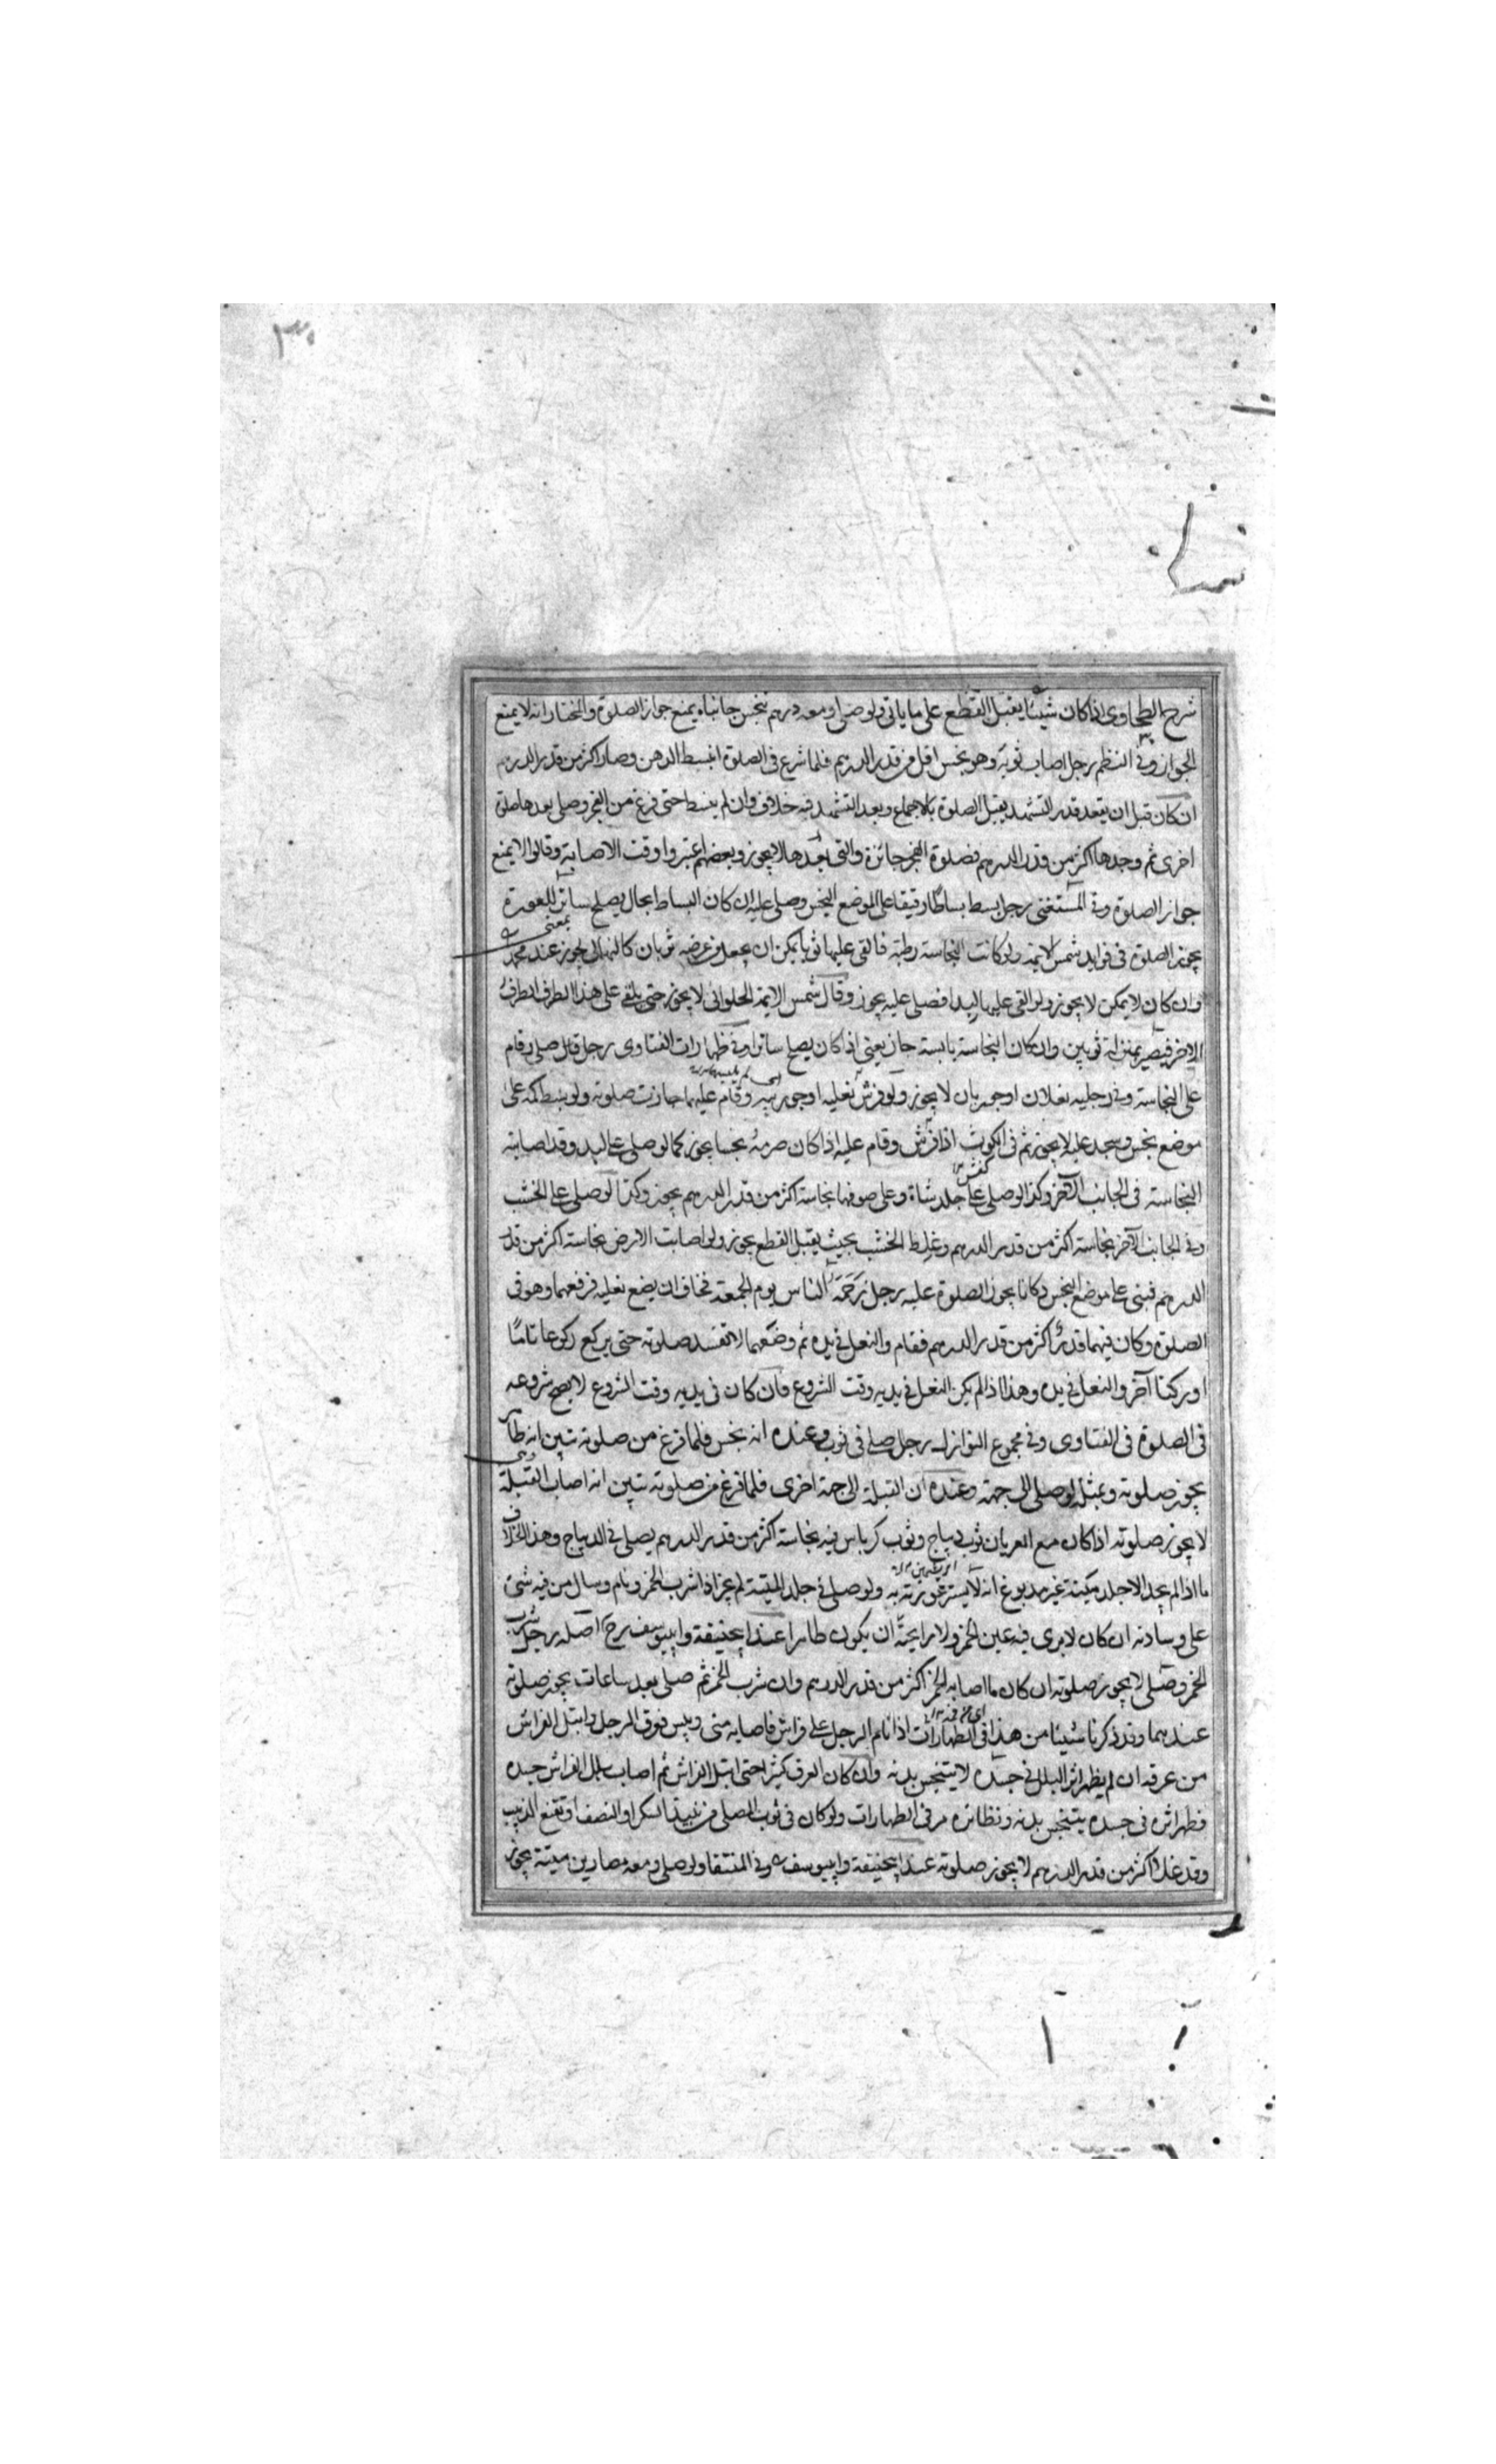 شرح الطحاوى اذا كان شيئا يقبل القطع على ما ياتى ولو صلى ومعه درهم نجس جانباه يمنع جواز الصلوة والمختار انه لا يمنع
الجواز وفى النظم رجل اصاب ثوبه وهو نجس اقل من قدر الدرهم فلما شرع فى الصلوة انبسط الدهن وصار اكثر من قدر الدرهم
ان كان قبل ان يقعد قدر التشهد يقبل الصلوة بالاجماع وبعد التشهد فيه خلاف وان لم ينبسط حتى فرغ من الفجر وصلى بعدها صلوة
اخرى ثم وجدها اكثر من قدر الدرهم فصلوة الفجر جائزة والتى بعدها لا يجوز وبعضهم اعتبروا وقت الاصابة وقالوا لا يمنع
جواز الصلوة وفى المستغنى رجل بسط بساطا رقيقا على الموضع النجس وصلى عليه ان كان البساط بحال يصلح ساتر للعورة
يجوز الصلوة فى فوايد شمس الايمة ولو كانت النجاسة رطبة فالقى عليها ثوبا يمكن ان يجعل من عرضه ثوبان كالنهالى يجوز عند محمد
وان كان لا يمكن لا يجوز ولو القى عليها لبدا فصلى عليه يجوز وقال شمس الايمة الحلوانى لا يجوز حتى يلقى على هذا الطرف الطرف
الاخر فيصير بمنزلة ثوبين وان كان النجاسة يابسة جاز يعنى اذا كان يصلح ساترا وفى ظهارات الفتاوى رجل قال صلى وقام
على النجاسة وفى رجليه نعلان او جوربان لا يجوز ولو فرش نعليه او جوربيه وقام عليهما جازت صلوته ولو بسط كمه على
موضع نجس وسجد عليه لا يجوز ثم فى الكوث اذا فرش وقام عليه اذا كان صرمه نجسا يجوز كما لو صلى على لبد وقد اصابته
النجاسة فى الجانب الآخر وكذا لو صلى على جلد شاة وعلى صوفها نجاسة اكثر من قدر الدرهم يجوز وكذا لو صلى على الخشب
وفى الجانب الآخر نجاسة اكثر من قدر الدرهم وغلظ الخشب بحيث يقبل القطع يجوز ولو اصابت الارض نجاسة اكثر من قدر
الدرهم فبنى على موضع النجس دكانا يجوز الصلوة عليه رجل زحمه الناس يوم الجمعة فخاف ان يضع نعليه فرفعهما وهو فى
الصلوة وكان فيهما قدر اكثر من قدر الدرهم فقام والنعل فى يده ثم وضعهما لا تفسد صلوته حتى يركع ركوعا تاما
او ركنا آخر والنعل فى يده وهذا اذا لم يكن النعل فى يديه وقت الشروع فان كان فى يديه وقت الشروع لا يصح شروعه
فى الصلوة فى الفتاوى وفى مجموع النوازل رجل صلى فى ثوب وعنده انه نجس فلما فرغ من صلوته تبين انه طاهر
يجوز صلوته وبمثله لو صلى الى جهة وعنده ان القبلة الى جهة اخرى فلما فرغ من صلوته تبين انه اصاب القبلة
لا يجوز صلوته اذا كان مع العريان ثوب ديباج وثوب كرباس فيه نجاسة اكثر من قدر الدرهم يصلى فى الديباج وهذا بخلاف
ما اذا لم يجد الا جلد ميتة غير مدبوغ انه لا يستر عورته به ولو صلى فى جلد الميتة لم يجز اذا شرب الخمر ونام وسال من فيه شئ
على وسادته ان كان لا يرى فيه عين الخمر ولا رايحة ان يكون طاهرا عند ابيحنيفة وابيوسف رح اصله رجل شرب
الخمر وصلى لا يجوز صلوته ان كان ما اصابه الخمر اكثر من قدر الدرهم وان شرب الخمر ثم صلى بعد ساعات يجوز صلوته
عندهما وقد ذكرنا شيئا من هذا فى الطهارات اذا نام الرجل على فراش فاصابه منى ويبس فوق الرجل وابتل الفراش
من عرقه ان لم يظهر اثر البلل فى جسده لا يتنجس بدنه وان كان العرق كثيرا حتى ابتل الفراش ثم اصاب بلل الفراش جسده
فظهر اثره فى جسده يتنجس بدنه ونظائره مر فى الطهارات ولو كان فى ثوب المصلى من نبيذ السكر او النصف او نقيع الزبيب
وقد غلا اكثر من قدر الدرهم لا يجوز صلوته عند ابيحنيفة وابيوسف وفى المنتقا ولو صلى ومعه مصارين ميتة يجوز